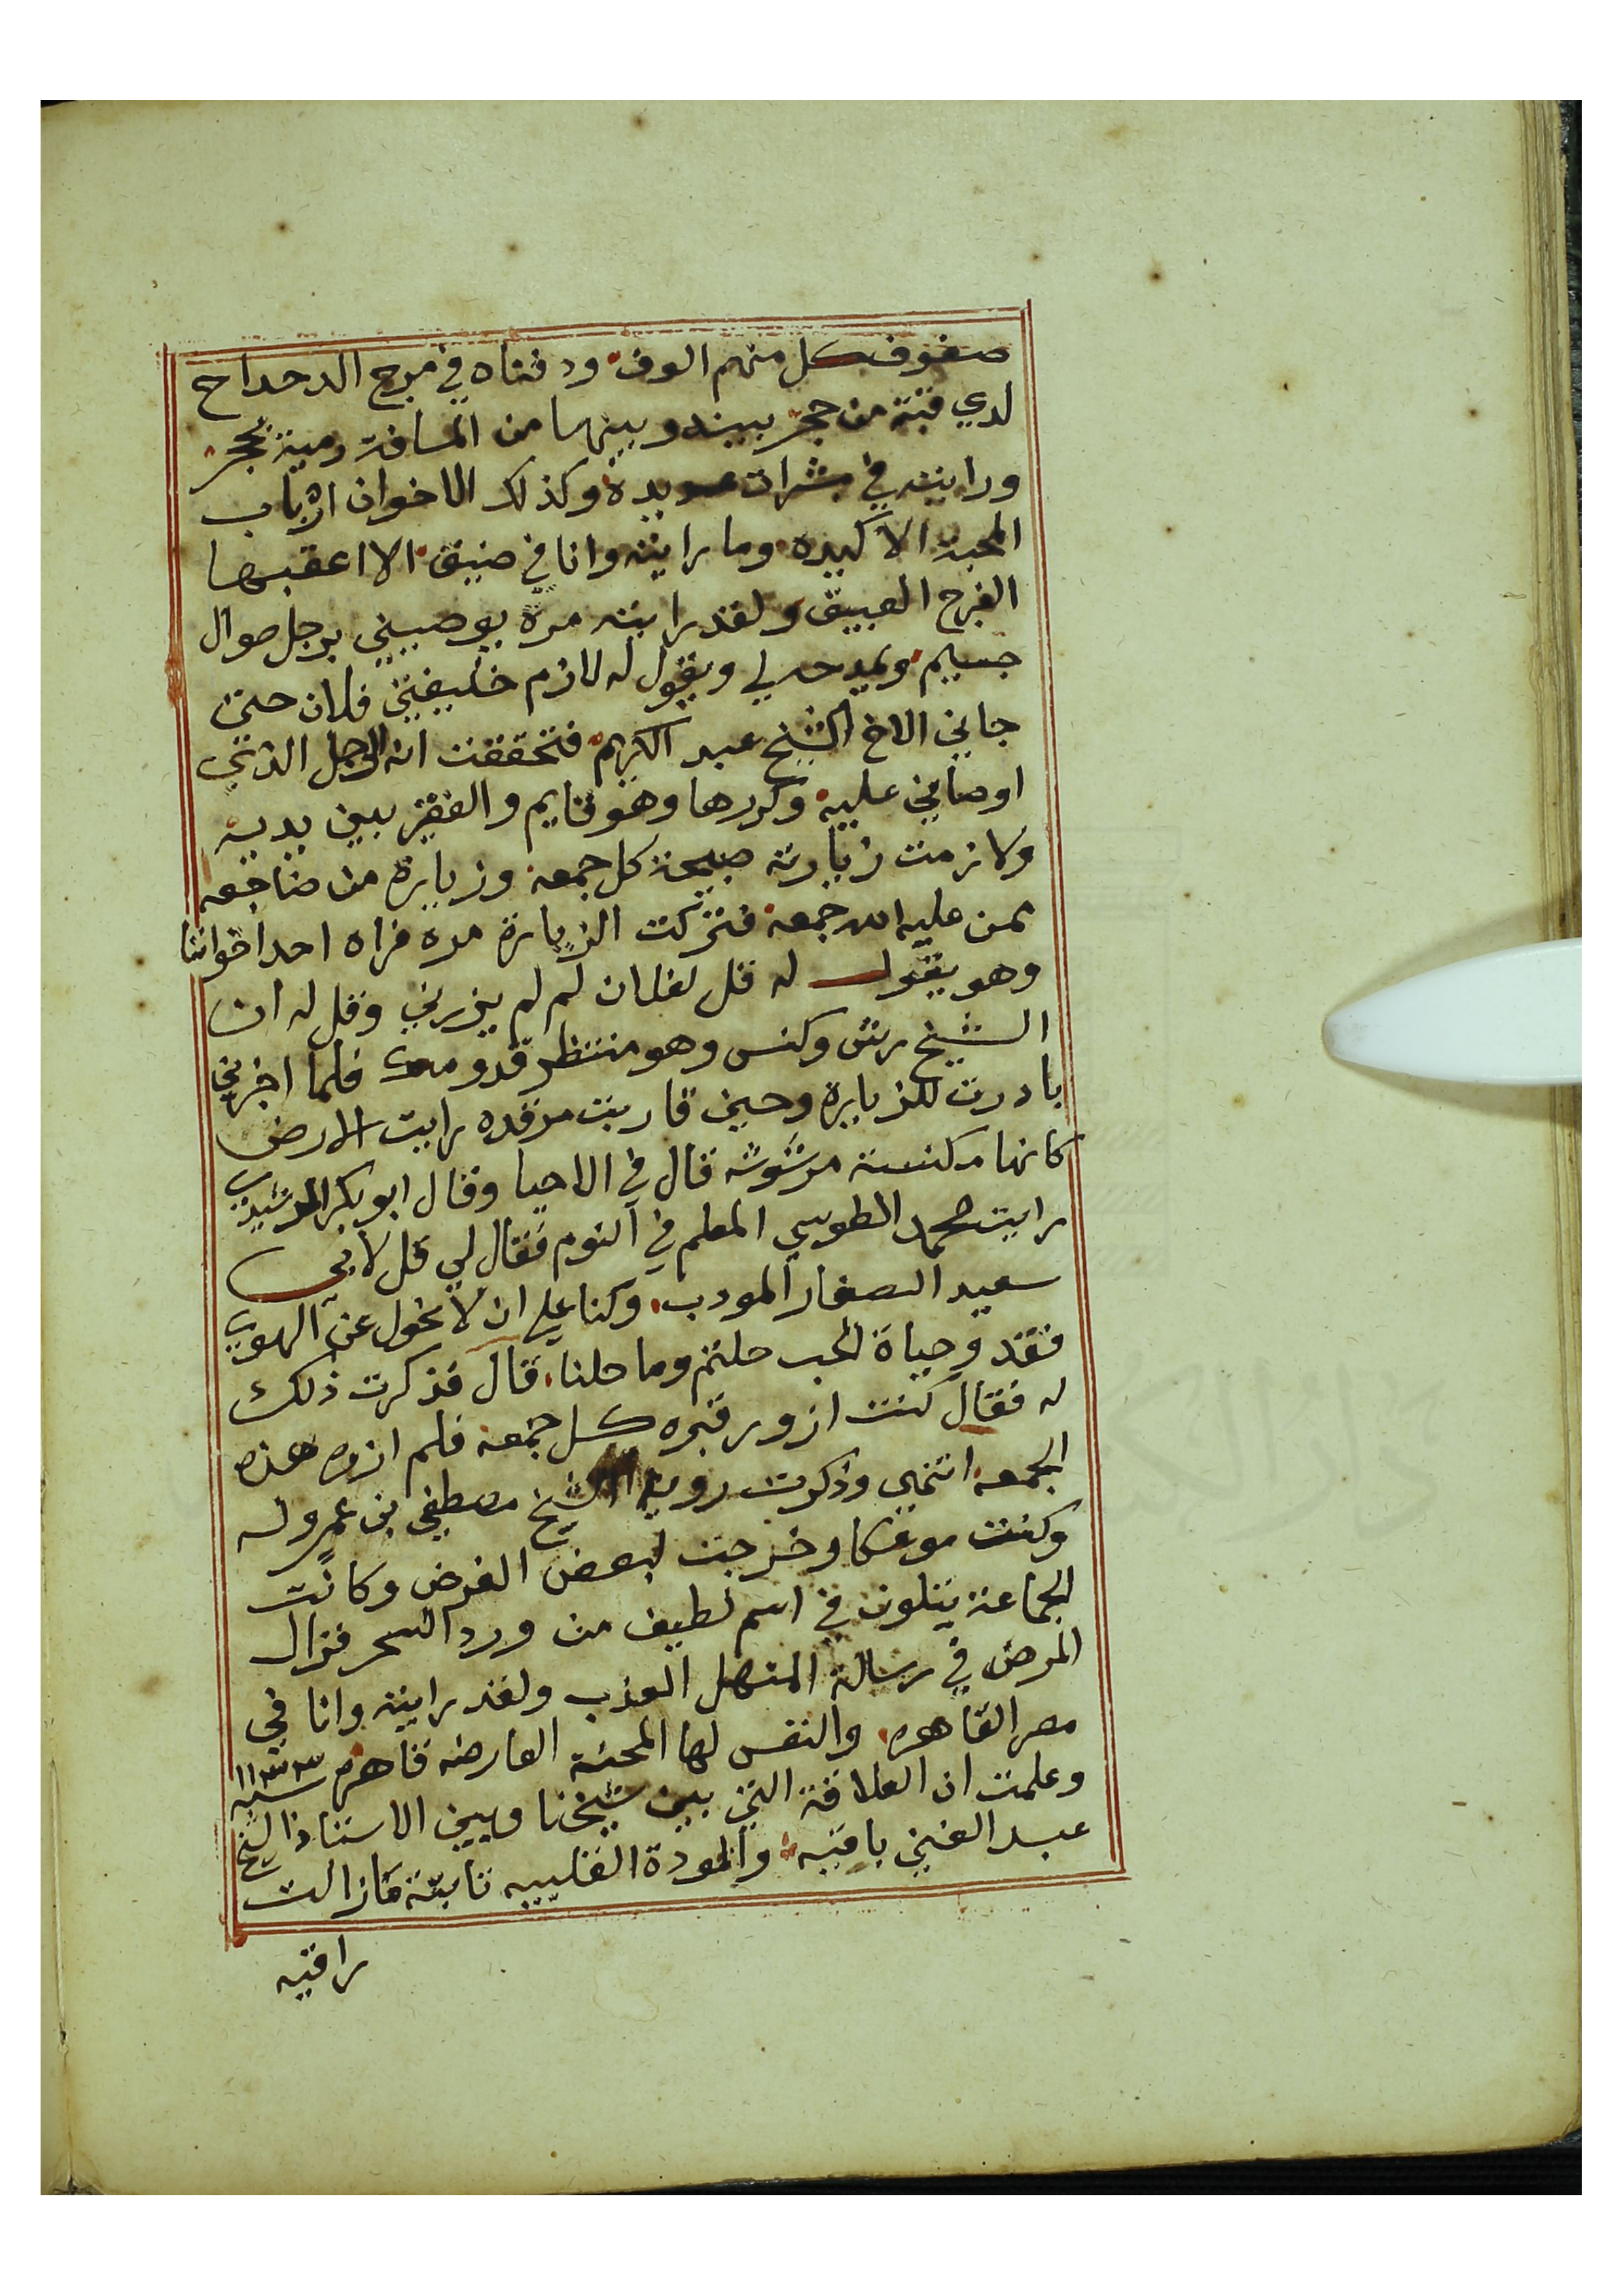 صفوف كل منهم الوف ودفناه في مرج الدحداح
لدي قبة من حجر بينه وبينها من المسافة رمية بحجر
ورايته في مبشرات عديدة وكذلك الاخوان ارباب
المحبة الاكيده وما رايته وانا في ضيق الا اعقبها
الفرج العبيق ولقد رايته مرة يوصيني برجل صوال
جسيم ويمدحه لي ويقول له لازم خليفتي فلان حتى
جاني الاخ الشيخ عبد الكريم فتحققت انه الرجل الذي
اوصاني عليه وكررها وهو نايم والفقير بين يديه
ولازمت زيارته صبيحة كل جمعة وزيارة من ضاجعه
ممن عليه الله جمعه فتركت الزيارة مره فراه احد اخواننا
وهو يقول له قل لفلان لم لم يزرني وقل له ان
الشيخ رش وكنس وهو منتظر قدومك فلما اخبرني
بادرت للزيارة وحين قاربت مرقده رايت الارض
كانها مكنسة مرشوشه قال في الاحيا وقال ابو بكر الرشيدي
رايت محمد الطوسي المعلم في النوم فقال لي قل لابي
سعيد الصفار المودب وكنا علي ان لا نحول عن الهوي
فقد وحياة الحب حلتم وما حلنا قال فذكرت ذلك
له فقال كنت ازور قبره كل جمعة فلم ازره هذه
الجمعه انتهي وذكرت روية الشيخ مصطفي بن عمرو له
وكنت موعكا وخرجت لبعض الغرض وكانت
الجماعة يتلون في اسم لطيف من ورد السحر فزال
المرض في رسالة المنهل العذب ولقد رايته وانا في
مصر القاهره والنفس لها المحنة العارضه قاهره سنة ١١٣٣
وعلمت ان العلاقة التي بين شيخنا وبين الاستاذ الشيخ
عبد الغني باقيه والمودة القلبيه ثابتة مازالت
راقيه